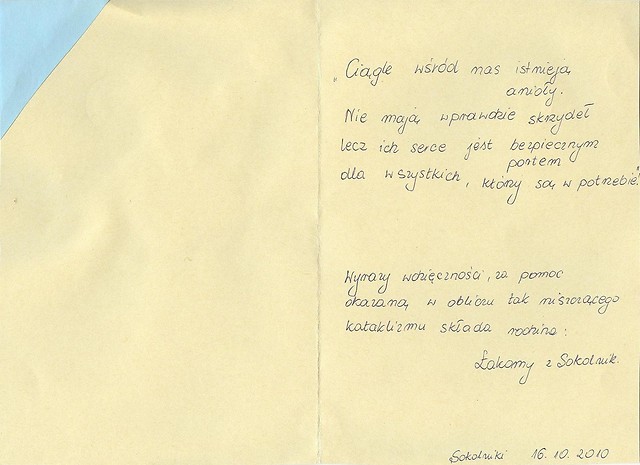 „Ciągle wśród nas istnieją
anioły.
Nie mają wprawdzie skrzydeł
lecz ich serce jest bezpiecznym
portem
dla wszystkich, którzy są w potrzebie."
Wyrazy wdzięczności, za pomoc
okazaną w obliczu tak niszczącego
kataklizmu składa rodzina:
Łakomy z Sokolnik.
Sokolniki 16.10.2010